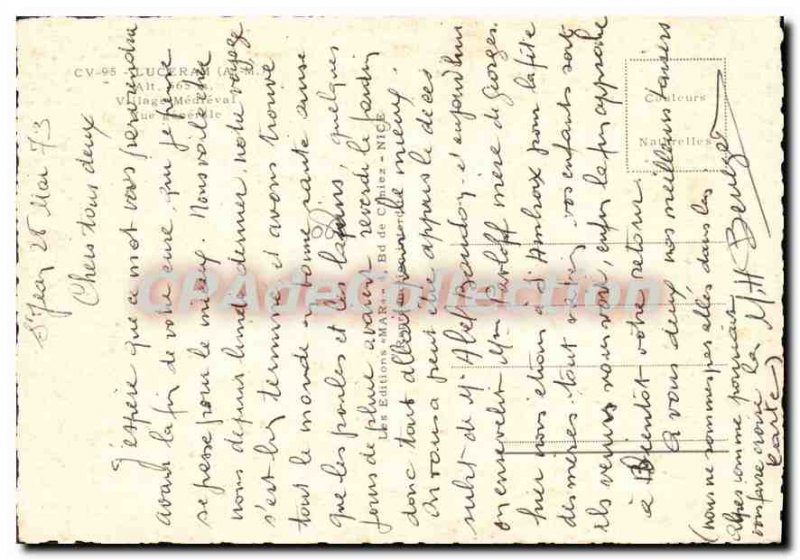 St Jean 28 Mai 73
Chers tous deux
J'espère que ce mot vous parviendra
avant la fin de votre cure, que je pense
se passe pour le mieux. Nous voilà rentrés
nous depuis lundi dernier, notre voyage
s'est bien terminé et avons trouvé
tout le monde en bonne santé ainsi
que les poules et les lapins, quelques
jours de pluie avaient reverdi le jardin
donc tout allait pour le mieux.
On vous a peut être appris le décès
subit de Mr Abel Baudoy et aujourd'hui
on ensevelit Mme mère de Georges.
hier nous étions à d'Ambroix pour la fête
des mères, tout va bien, vos enfants sont
ils venus vous voir, enfin la fin approche
à Bientôt votre retour.
A vous deux nos meilleurs baisers
(nous ne sommes pas allés dans les
alpes comme pourrait
vous faire croire la
carte)
M. H
CV-95 - LUCERAM (A.-M.)
Alt. 665 m.
Village Médiéval
Vue générale
Les Editions «MAR» Bd de Cimiez - NICE
Couleurs
Naturelles
CPAdeCollection